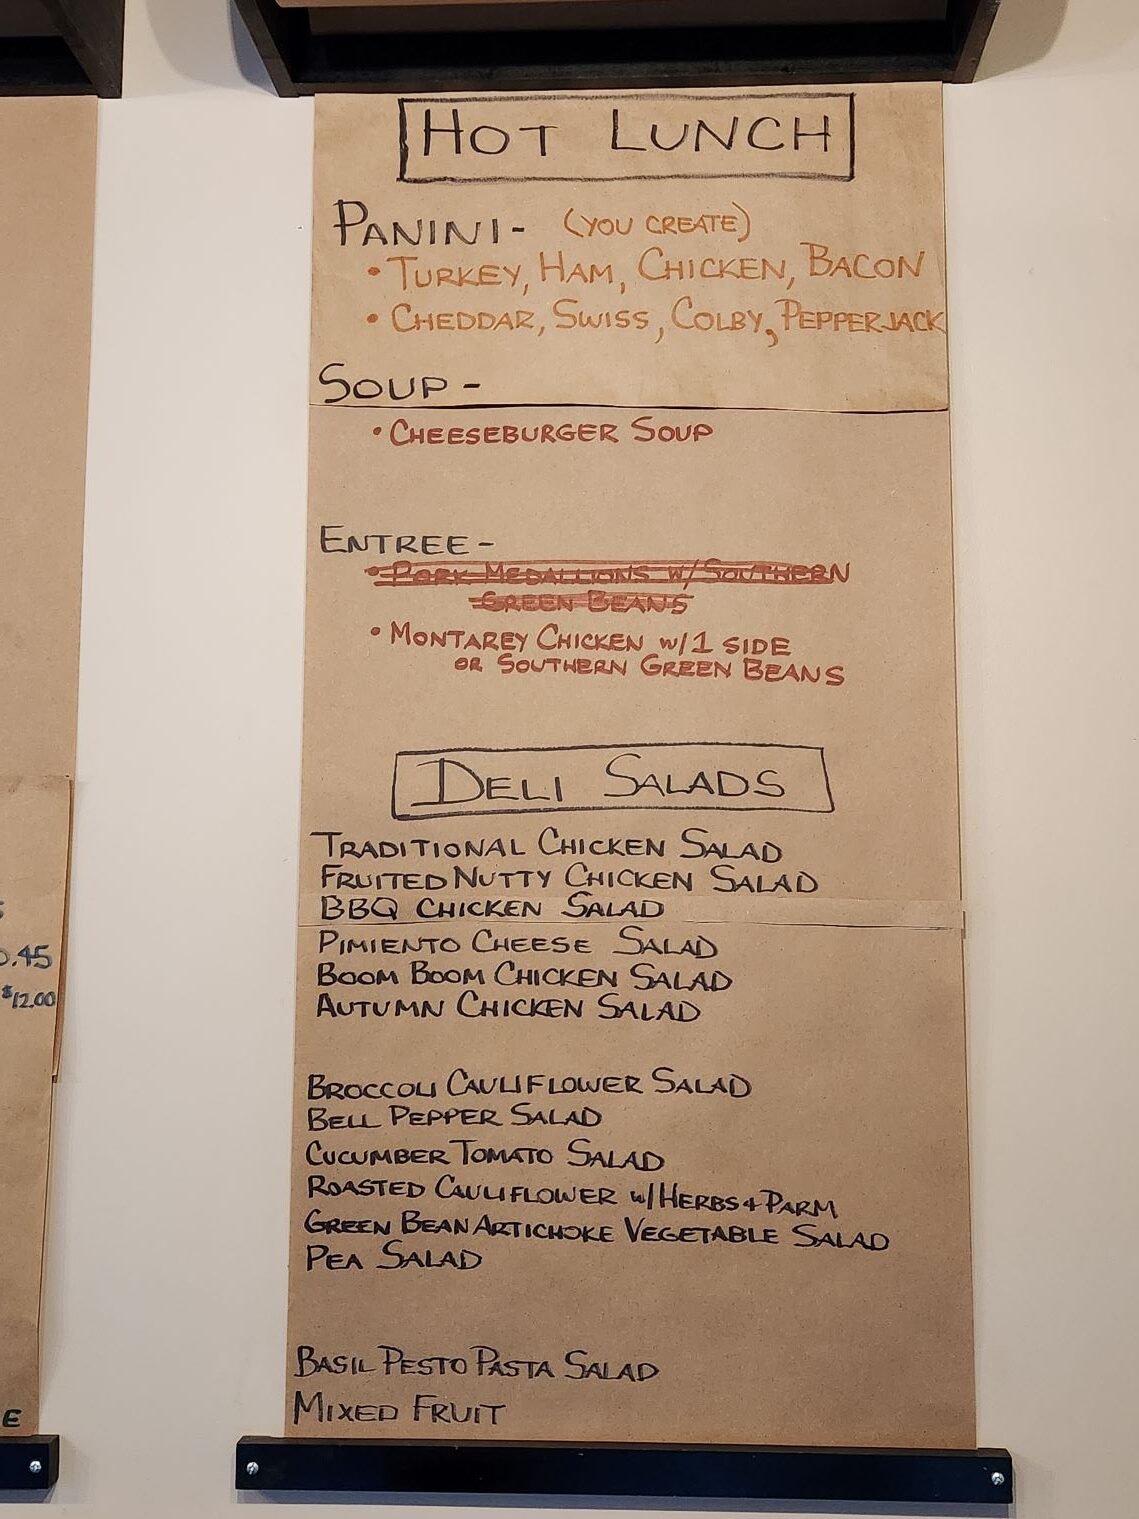 HOT LUNCH
PANINI- (YOU CREATE)
• TURKEY, HAM, CHICKEN, BACON
• CHEDDAR, SWISS, COLBY, PEPPERJACK
SOUP-
• CHEESEBURGER SOUP
ENTREE-
• PORK MEDALLIONS W/ SOUTHERN
GREEN BEANS
• MONTAREY CHICKEN W/1 SIDE
OR SOUTHERN GREEN BEANS
DELI SALADS
TRADITIONAL CHICKEN SALAD
FRUITED NUTTY CHICKEN SALAD
BBQ CHICKEN SALAD
PIMIENTO CHEESE SALAD
BOOM BOOM CHICKEN SALAD
AUTUMN CHICKEN SALAD
BROCCOLI CAULIFLOWER SALAD
BELL PEPPER SALAD
CUCUMBER TOMATO SALAD
ROASTED CAULIFLOWER W/ HERBS + PARM
GREEN BEAN ARTICHOKE VEGETABLE SALAD
PEA SALAD
BASIL PESTO PASTA SALAD
MIXED FRUIT
.45
$12.00
E